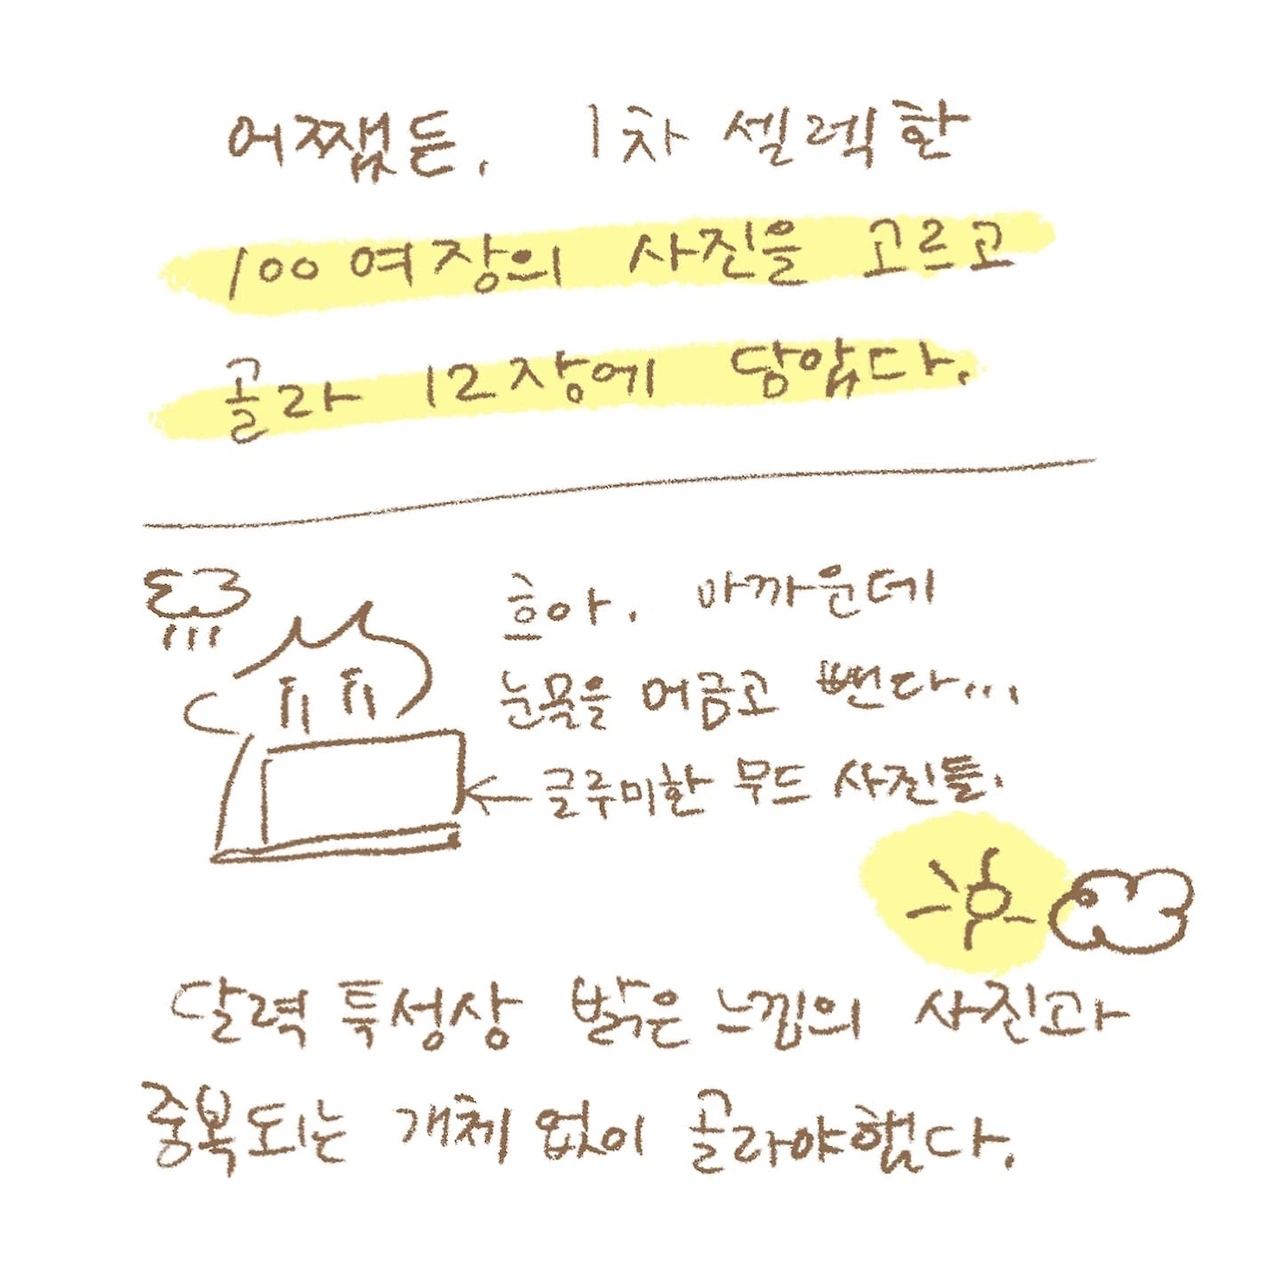 어쨌든, 1차 셀렉한
100여장의 사진을 고르고
골라 12장에 담았다.
흐아. 아까운데
눈물을 머금고 뺀다...
← 글루미한 무드 사진들.
달력 특성상 밝은 느낌의 사진과
중복되는 개체 없이 골라야했다.